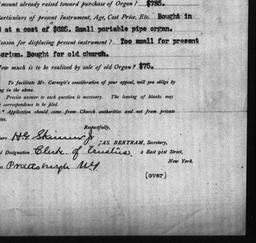 mount already raised toward purchase of Organ? $785.
Particulars of present Instrument, Age, Cost Price, Etc. Bought in
at a cost of $625. Small portable pipe organ.
eason for displacing present instrument? Too small for present
torium. Bought for old church.
ow much is to be realized by sale of old Organ? $75.
To facilitate Mr. Carnegie's consideration of your appeal, will you oblige by
ng in the above.
Precise answer to each question is necessary. The leaving of blanks may
t correspondence to be filed.
Application should come from Church authorities and not from private
ties.
Respectfully,
JAS. BERTRAM, Secretary,
ture H G Skinner Jr
al Designation Clerk of Trustees 2 East 91st Street,
New York.
ss Prattsburgh NY
(over)